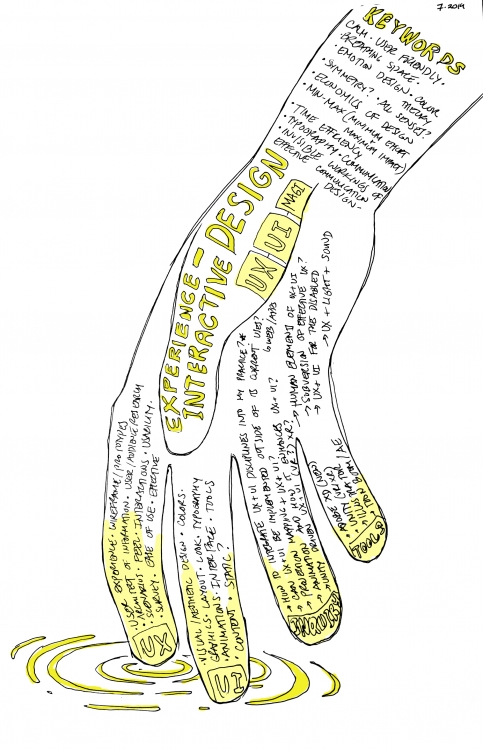 7.2019
KEYWORDS
CALM · USER FRIENDLY ·
BREATHING SPACE ·
· EMOTION DESIGN · COLOR
THEORY
· SYMMETRY? · ALL SENSES?
· ECONOMICS OF DESIGN
· MIN-MAX (MINIMUM EFFORT
MAXIMUM IMPACT)
· TIME EFFICIENCY
· TYPOGRAPHY · COMMUNICATION
· INVISIBLE WORKINGS OF
EFFECTIVE COMMUNICATION
DESIGN -
EXPERIENCE -
INTERACTIVE DESIGN
UX UI MAGI
USER EXPERIENCE · WIREFRAME/PROTOTYPES
· ARCHITECT OF INFORMATION · USER/AUDIENCE/RESEARCH
· SCENARIOS · FEEL · INTERACTIONS · USABILITY ·
SURVEY · EASE OF USE · EFFECTIVE
UX
· VISUAL/AESTHETIC DESIGN · COLORS ·
GRAPHICS · LAYOUT · LOOK · TYPOGRAPHY
ANIMATIONS · INTERFACE · TOOLS
· CONTENT · STATIC?
UI
HOW TO INTEGRATE UX + UI DISCIPLINES INTO MY PRACTICE?
→ UX + UI BE IMPLEMENTED OUTSIDE OF ITS CURRENT USES?
↳ WEBS/APPS
→ CAN UX MAPPING + UX + UI?
→ PROJECTION AND UX + UI (VR?) XR?
→ ANIMATION DRIVEN
→ UNITY
→ HUMAN ELEMENT OF UX + UI
→ SUBVERSION OF EFFECTIVE UX?
→ UX + UI FOR THE DISABLED
→ UX + LIGHT + SOUND
ADOBE XD
UNITY
TOOLS